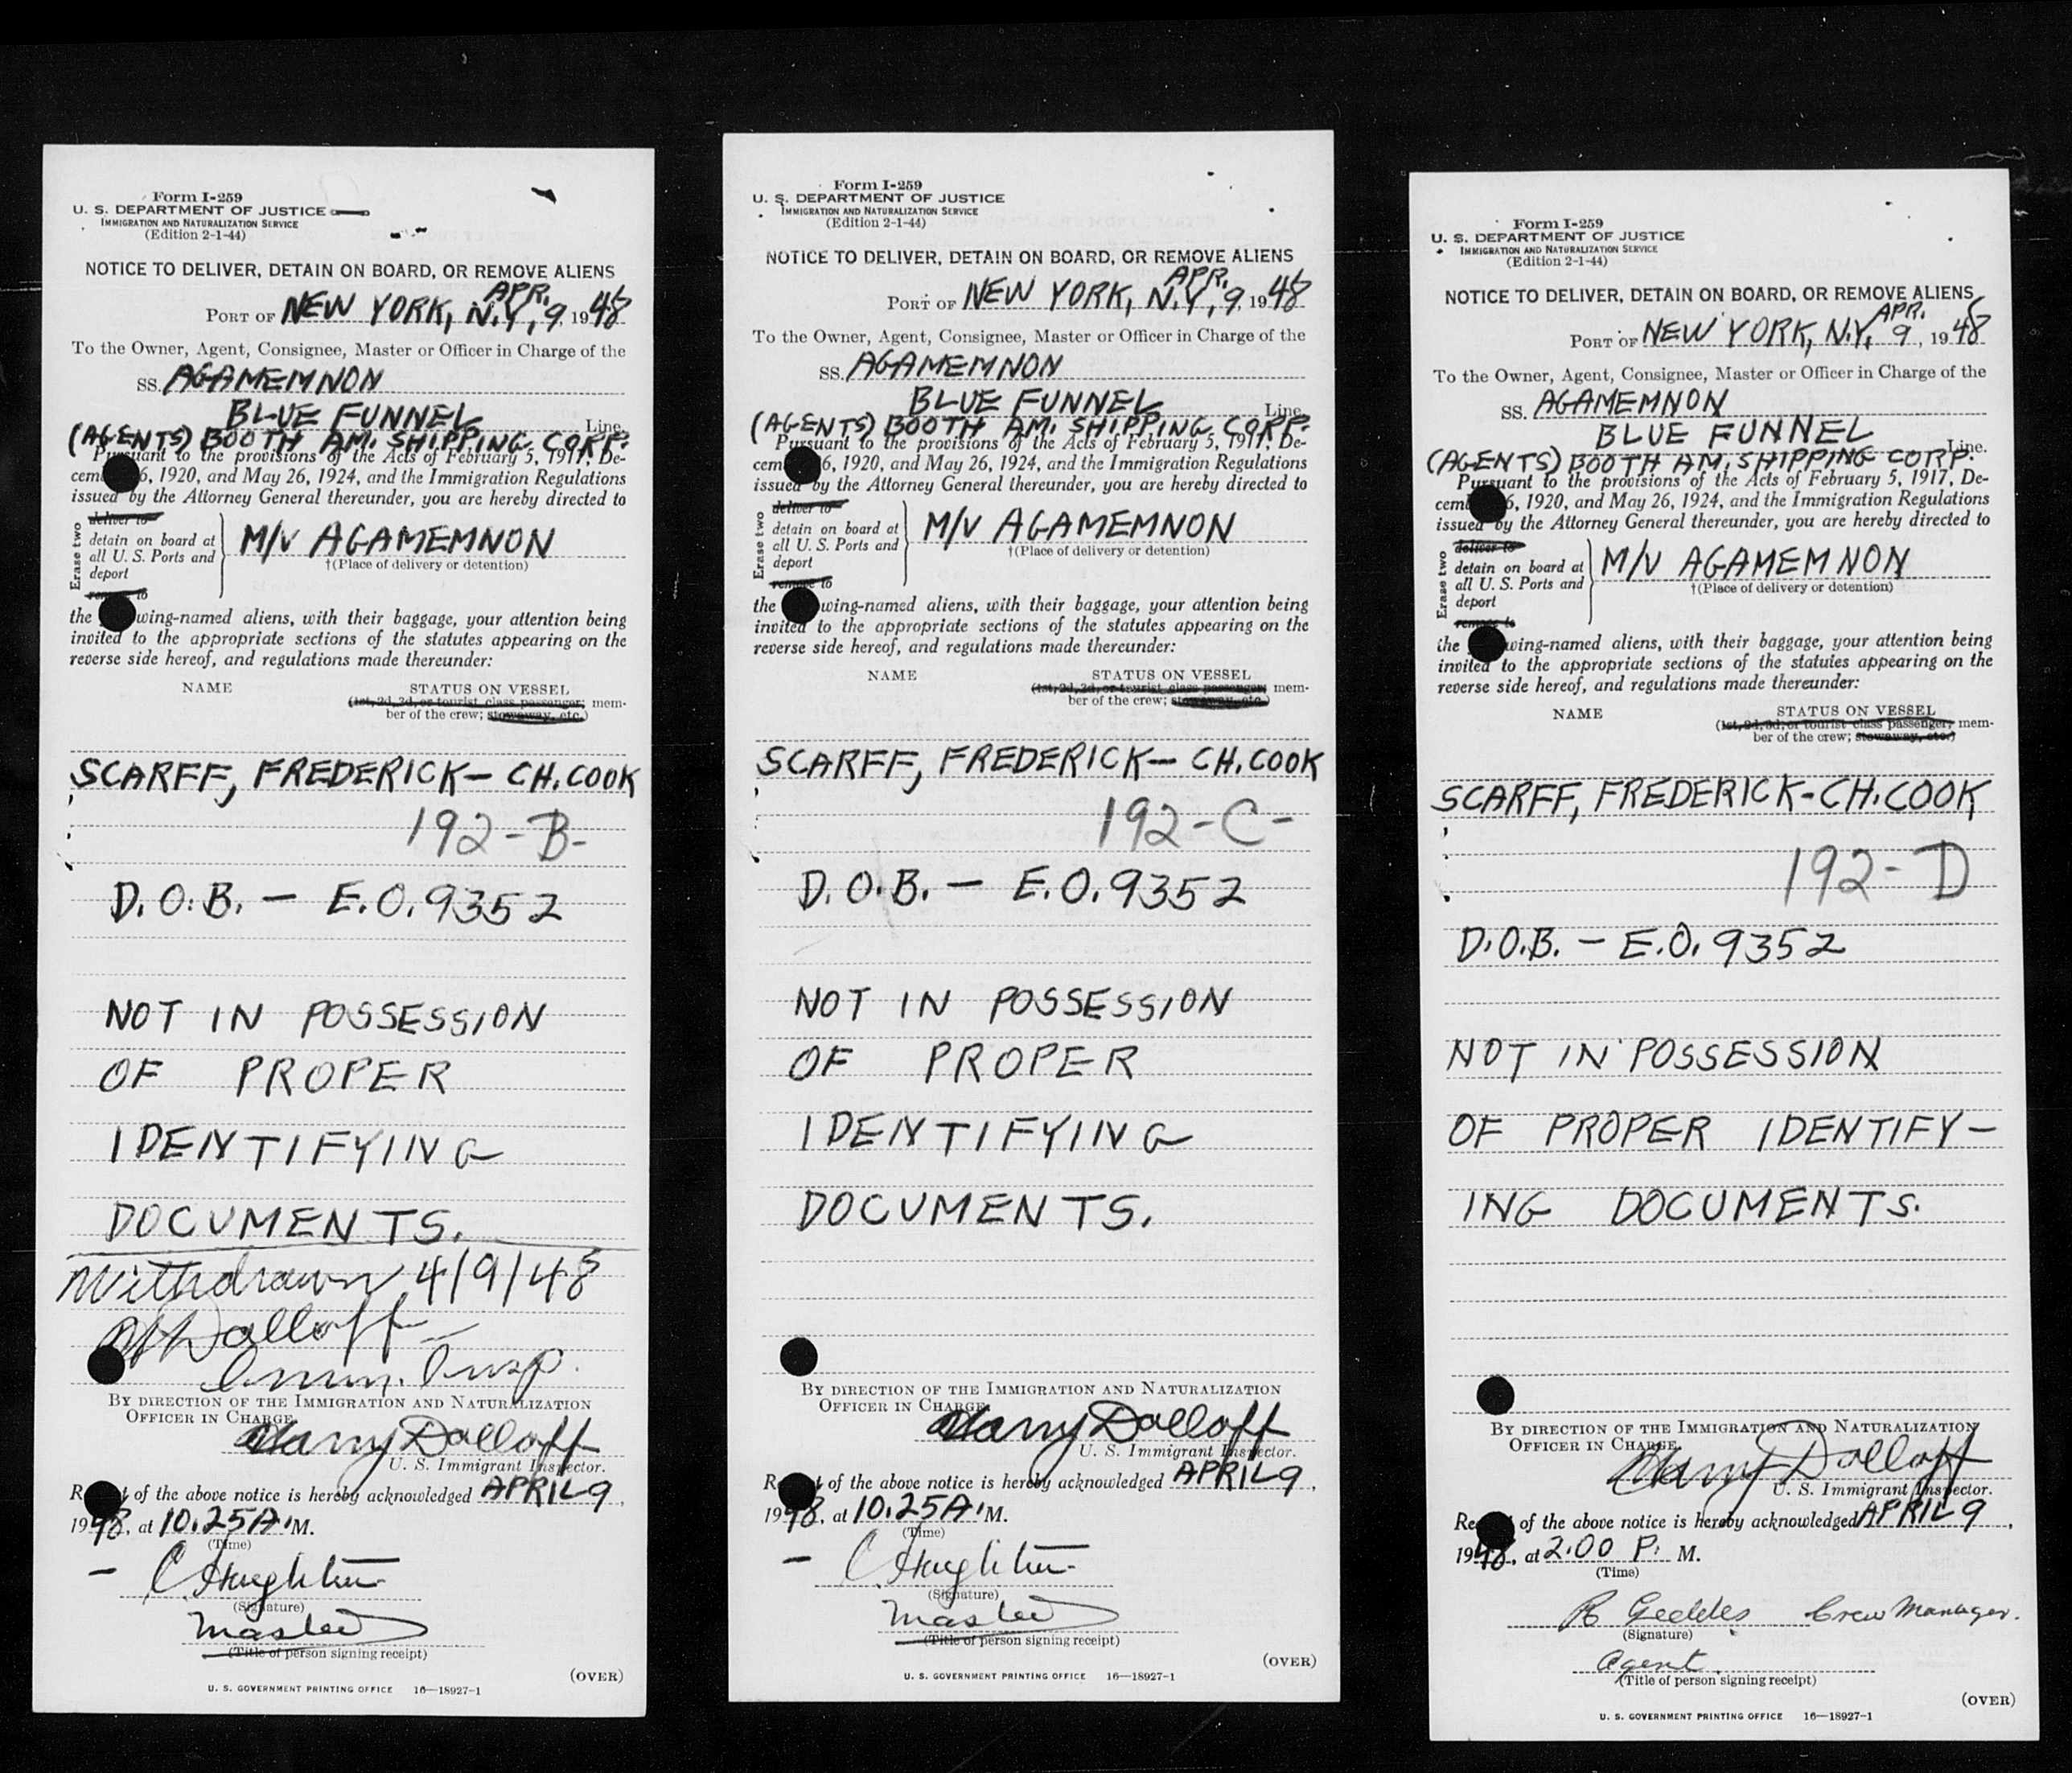 Form I-259
U. S. DEPARTMENT OF JUSTICE
IMMIGRATION AND NATURALIZATION SERVICE
(Edition 2-1-44)
NOTICE TO DELIVER, DETAIN ON BOARD, OR REMOVE ALIENS
APR.
PORT OF NEW YORK, N.Y, 9, 1948
To the Owner, Agent, Consignee, Master or Officer in Charge of the
SS. AGAMEMNON
BLUE FUNNEL Line.
(AGENTS) BOOTH AM. SHIPPING CORP.
Pursuant to the provisions of the Acts of February 5, 1917, De-
cem 6, 1920, and May 26, 1924, and the Immigration Regulations
issued by the Attorney General thereunder, you are hereby directed to
Erase two
deliver to
detain on board at
all U. S. Ports and
deport
remove to
M/V AGAMEMNON
†(Place of delivery or detention)
the wing-named aliens, with their baggage, your attention being
invited to the appropriate sections of the statutes appearing on the
reverse side hereof, and regulations made thereunder:
NAME STATUS ON VESSEL
(1st, 2d, 3d, or tourist class passenger; mem-
ber of the crew; stowaway, etc.)
SCARFF, FREDERICK— CH. COOK
192-B-
D.O.B. — E.O. 9352
NOT IN POSSESSION
OF PROPER
IDENTIFYING
DOCUMENTS.
Withdrawn 4/9/48
Dolloff
Imm. Insp.
BY DIRECTION OF THE IMMIGRATION AND NATURALIZATION
OFFICER IN CHARGE
Harry Dolloff
U. S. Immigrant Inspector.
R t of the above notice is hereby acknowledged APRIL 9,
1948, at 10.25 A. M.
(Time)
— C. Houghton
(Signature)
Master
(Title of person signing receipt)
(OVER)
U. S. GOVERNMENT PRINTING OFFICE 16—18927-1
Form I-259
U. S. DEPARTMENT OF JUSTICE
IMMIGRATION AND NATURALIZATION SERVICE
(Edition 2-1-44)
NOTICE TO DELIVER, DETAIN ON BOARD, OR REMOVE ALIENS
APR.
PORT OF NEW YORK, N.Y, 9, 1948
To the Owner, Agent, Consignee, Master or Officer in Charge of the
SS. AGAMEMNON
BLUE FUNNEL Line.
(AGENTS) BOOTH AM. SHIPPING CORP.
Pursuant to the provisions of the Acts of February 5, 1917, De-
cem 6, 1920, and May 26, 1924, and the Immigration Regulations
issued by the Attorney General thereunder, you are hereby directed to
Erase two
deliver to
detain on board at
all U. S. Ports and
deport
remove to
M/V AGAMEMNON
†(Place of delivery or detention)
the wing-named aliens, with their baggage, your attention being
invited to the appropriate sections of the statutes appearing on the
reverse side hereof, and regulations made thereunder:
NAME STATUS ON VESSEL
(1st, 2d, 3d, or tourist class passenger; mem-
ber of the crew; stowaway, etc.)
SCARFF, FREDERICK— CH. COOK
192-C-
D.O.B. — E.O. 9352
NOT IN POSSESSION
OF PROPER
IDENTIFYING
DOCUMENTS.
BY DIRECTION OF THE IMMIGRATION AND NATURALIZATION
OFFICER IN CHARGE
Harry Dolloff
U. S. Immigrant Inspector.
R t of the above notice is hereby acknowledged APRIL 9,
1948, at 10.25 A. M.
(Time)
— C. Houghton
(Signature)
Master
(Title of person signing receipt)
(OVER)
U. S. GOVERNMENT PRINTING OFFICE 16—18927-1
Form I-259
U. S. DEPARTMENT OF JUSTICE
IMMIGRATION AND NATURALIZATION SERVICE
(Edition 2-1-44)
NOTICE TO DELIVER, DETAIN ON BOARD, OR REMOVE ALIENS
APR.
PORT OF NEW YORK, N.Y. 9, 1948
To the Owner, Agent, Consignee, Master or Officer in Charge of the
SS. AGAMEMNON
BLUE FUNNEL Line.
(AGENTS) BOOTH AM. SHIPPING CORP.
Pursuant to the provisions of the Acts of February 5, 1917, De-
cem 6, 1920, and May 26, 1924, and the Immigration Regulations
issued by the Attorney General thereunder, you are hereby directed to
Erase two
deliver to
detain on board at
all U. S. Ports and
deport
remove to
M/V AGAMEMNON
†(Place of delivery or detention)
the wing-named aliens, with their baggage, your attention being
invited to the appropriate sections of the statutes appearing on the
reverse side hereof, and regulations made thereunder:
NAME STATUS ON VESSEL
(1st, 2d, 3d, or tourist class passenger; mem-
ber of the crew; stowaway, etc.)
SCARFF, FREDERICK-CH. COOK
192-D
D.O.B. — E.O. 9352
NOT IN POSSESSION
OF PROPER IDENTIFY-
ING DOCUMENTS.
BY DIRECTION OF THE IMMIGRATION AND NATURALIZATION
OFFICER IN CHARGE
Harry Dolloff
U. S. Immigrant Inspector.
Re t of the above notice is hereby acknowledged APRIL 9,
1948, at 2:00 P. M.
(Time)
R Geddes Crew Manager.
(Signature)
Agent
(Title of person signing receipt)
(OVER)
U. S. GOVERNMENT PRINTING OFFICE 16—18927-1